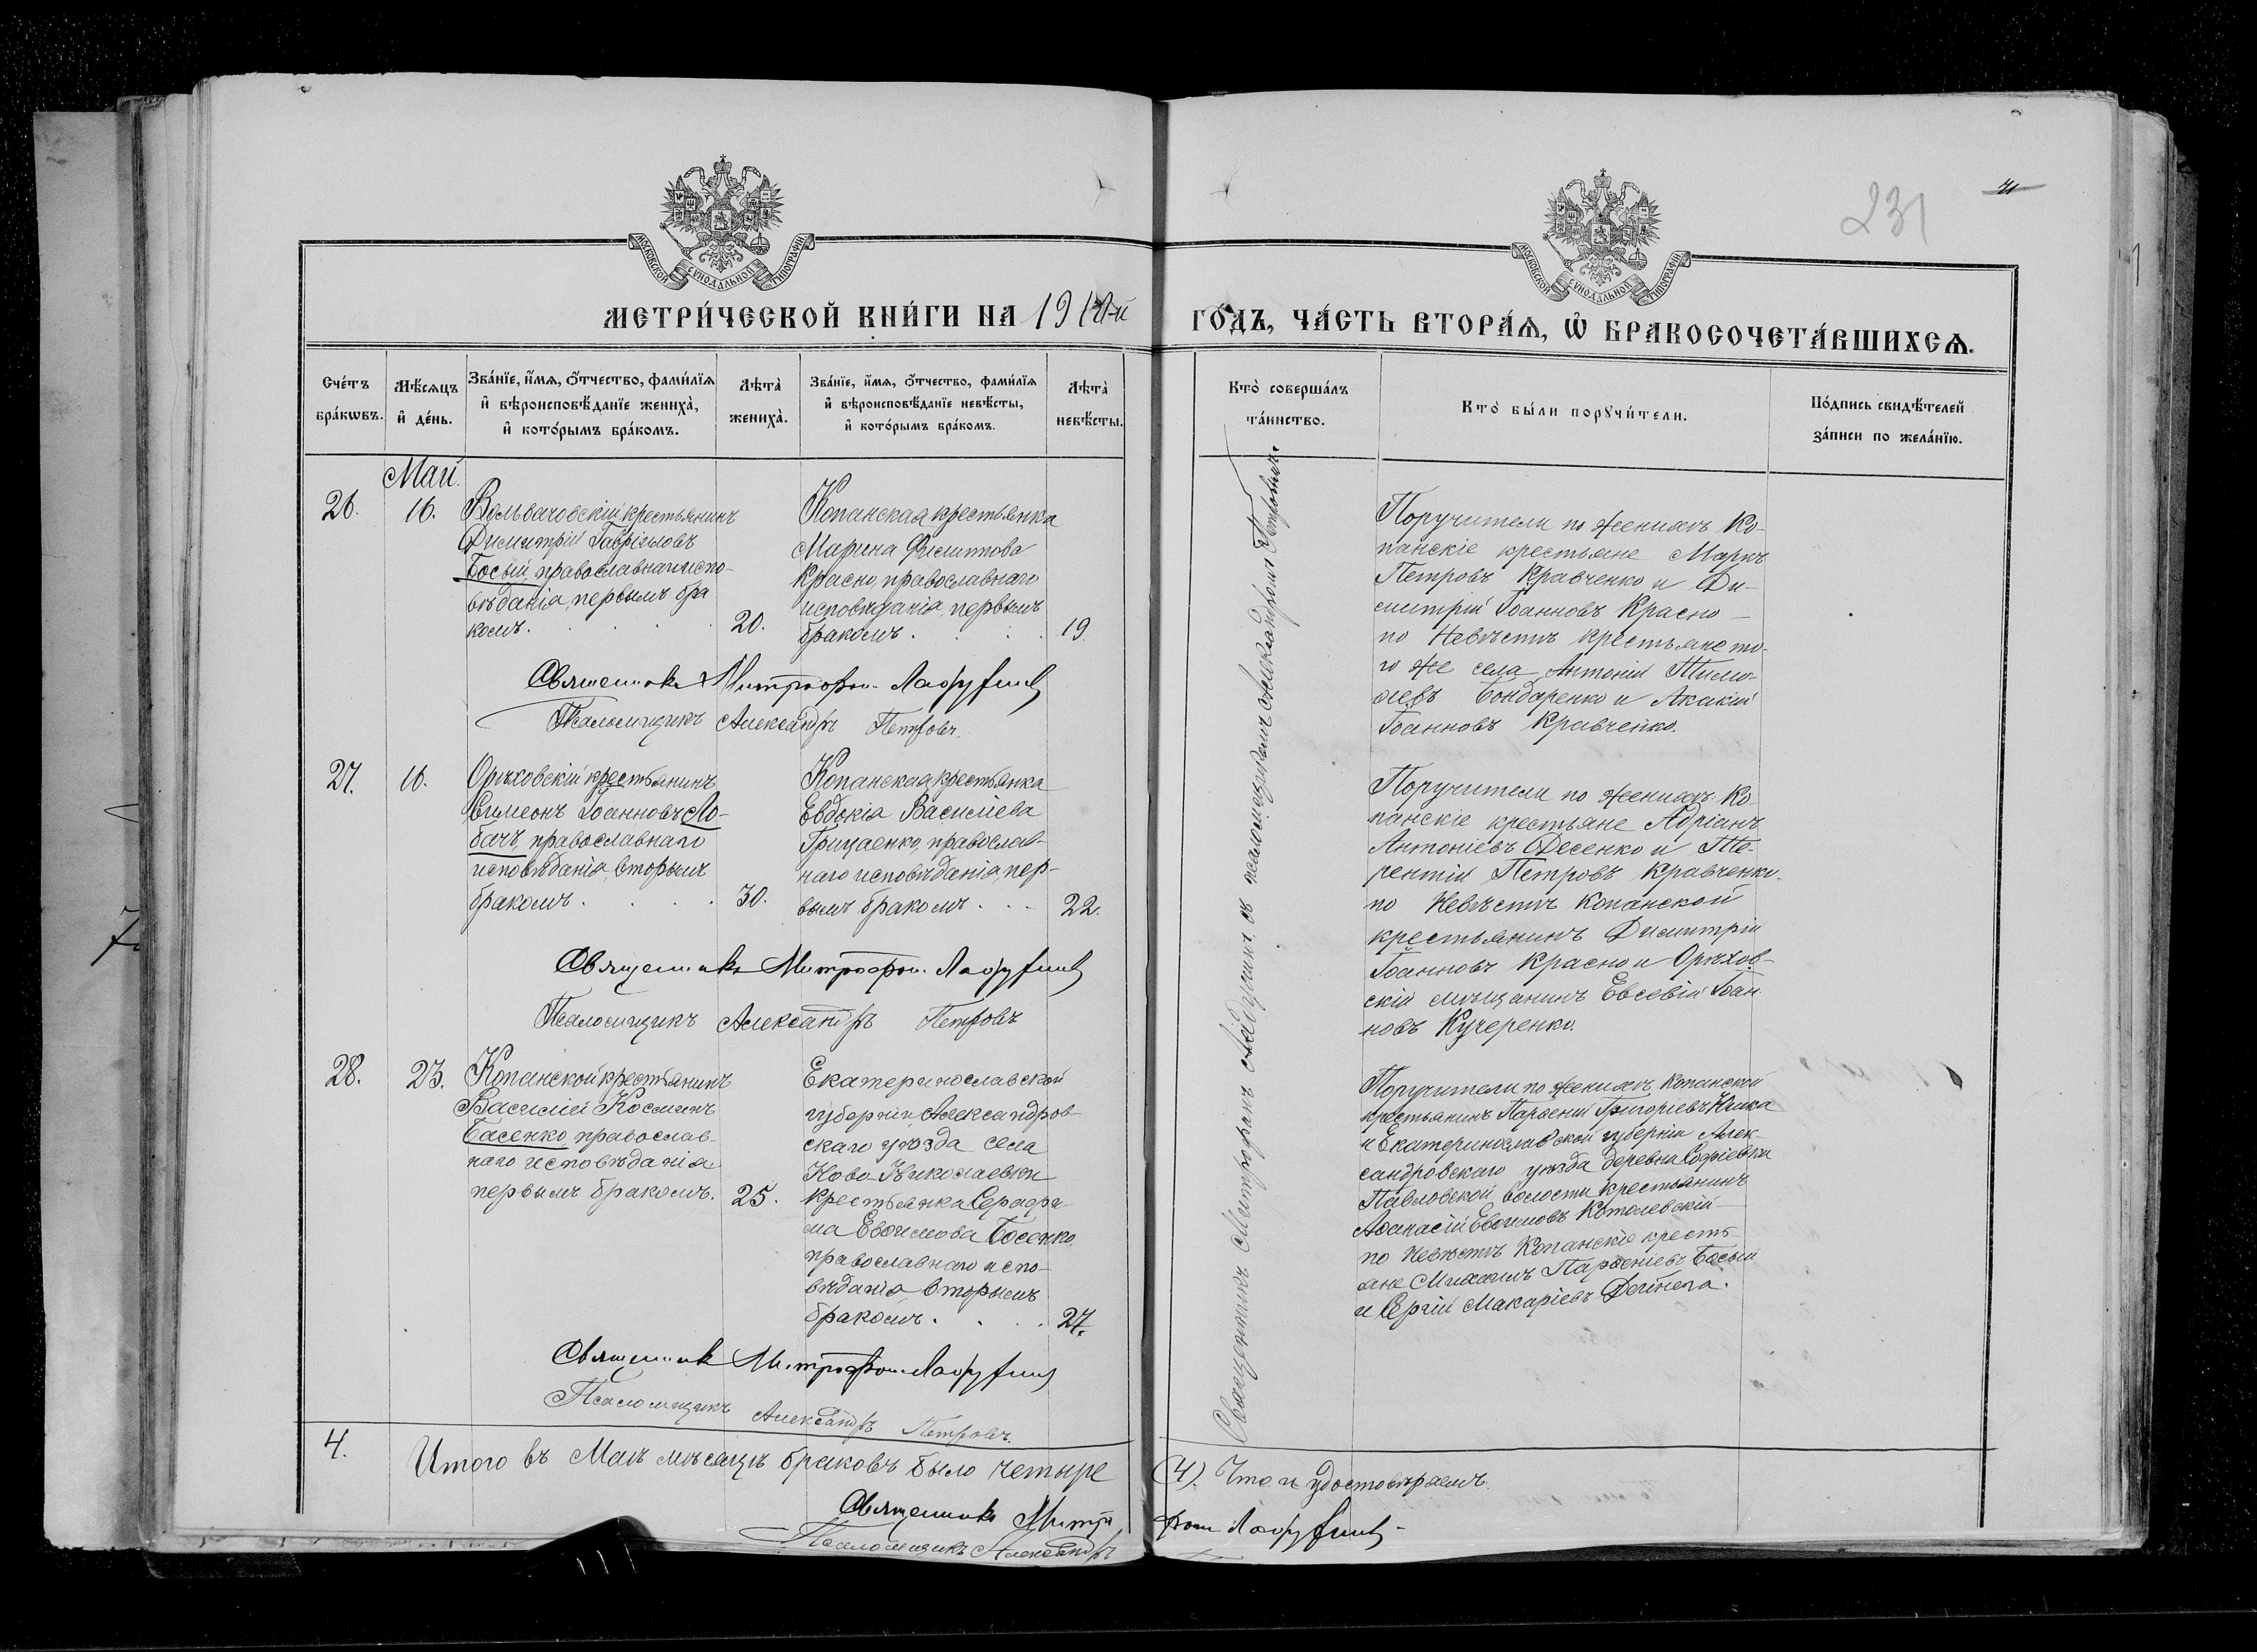 231
МОСКОВСКОЙ СУНОДАЛЬНОЙ ТИПОГРАФІИ
МОСКОВСКОЙ СУНОДАЛЬНОЙ ТИПОГРАФІИ
МЕТРИ́ЧЕСКОЙ КНИ́ГИ НА 191
ГО́ДЪ, ЧА́СТЬ ВТОРА́Ѧ, Ѽ БРАКОСОЧЕТА́ВШИХСѦ.
Сче́тъ бра́кѡвъ.
Мѣ́сѧцъ и҆ де́нь.
Зва́нїе, и҆́мѧ, о҆́тчество, фами́лїѧ
и҆ вѣроисповѣ́данїе жениха̀,
и҆ кото́рымъ бра́комъ.
Лѣта̀ жениха̀.
Зва́нїе, и҆́мѧ, о҆́тчество, фами́лїѧ
и҆ вѣроисповѣ́данїе невѣ́сты,
и҆ кото́рымъ бра́комъ.
Лѣта̀ невѣ́сты.
Кто̀ соверша́лъ
та́инство.
Кто̀ бы́ли порꙋчи́тели.
По́дпись свидѣ́телей
за́писи по жела́нїю.
Май.
26.
16.
Вольвачовскій крестьянинъ
Димитрій Гавріиловъ
Босый, православнаго испо-
вѣданія, первымъ бра
комъ.
20.
Копанская крестьянка
Марина Филиппова
Красно, православнаго
исповѣданія, первымъ
бракомъ.
19.
Поручители по женихѣ Ко-
панскіе крестьяне Маркъ
Петровъ Кравченко и Ди-
митрій Іоанновъ Красно –
по Невѣстѣ крестьяне то-
го же села Антоній
Бондаренко и Акакій
Іоанновъ Кравченко.
Священникъ Митрофан
Псаломщикъ Александръ Петровъ.
27.
16.
Орѣховскій крестьянинъ
Симеонъ Іоанновъ Ло-
бачъ, православнаго
исповѣданія, вторымъ
бракомъ.
30.
Копанская крестьянка
Евдокія Василіева
Грицаенко, православ-
наго исповѣданія, пер-
вымъ бракомъ.
22.
Поручители по женихѣ Ко-
панскіе крестьяне Адріанъ
Антоніевъ Фесенко и Те-
рентій Петровъ Кравченко.
по Невѣстѣ Копанской
крестьянинъ Димитрій
Іоанновъ Красно и Орѣхов-
скій мѣщанинъ Евсевій Іоан
новъ Кучеренко.
Священникъ Митрофан
Псаломщикъ Александръ Петровъ
28.
23.
Копанской крестьянинъ
Василій Косминъ
Басенко, православ-
наго исповѣданія
первымъ бракомъ.
25.
Екатеринославской
губерніи, Александров-
скаго уѣзда села
Ново-Николаевки
крестьянка Серафи
ма Евфимова Босенко
православнаго испо-
вѣданія, вторымъ
бракомъ.
27.
Поручители по женихѣ Копанской
крестьянинъ Парфеній Григоріевъ
и Екатеринославской губерніи Алек-
сандровскаго уѣзда деревни Софіевки
Павловской волости крестьянинъ
Афанасій Евфимовъ Котолевскій –
по Невѣстѣ Копанскіе кресть-
яне Михаилъ Парфеніевъ Босый
и Сергій Макаріевъ Дейнега.
Священникъ Митрофан
Псаломщикъ Александръ Петровъ.
Священникъ Митрофанъ съ псаломщикомъ Александромъ Петровымъ.
4.
Итого въ Маѣ мѣсяцѣ браковъ было четыре (4). Что и удостовѣряемъ.
Священникъ Митрофан
Псаломщикъ Александръ